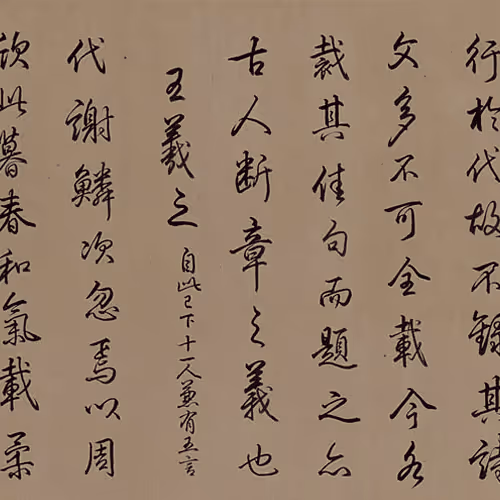 行於代故不錄其詩
文多不可全載今各
裁其佳句而題之亦
古人斷章之義也
王羲之 自此已下十一人兼有五言
代謝鱗次忽焉以周
欣此暮春和氣載柔